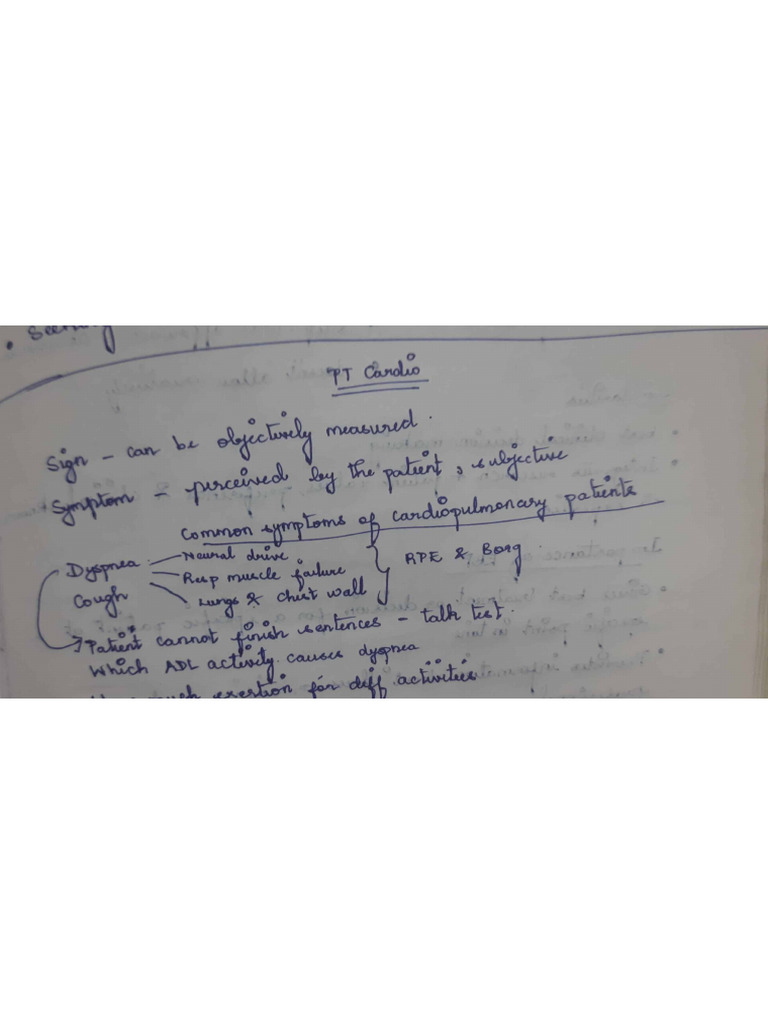 PT Cardio
Sign – can be objectively measured.
Symptom – perceived by the patient, subjective
Common symptoms of cardiopulmonary patients
Dyspnea – Neural drive
Resp muscle failure } RPE & Borg
Cough
Lungs & chest wall
→ Patient cannot finish sentences – talk test.
Which ADL activity causes dyspnea
much exertion for diff activities